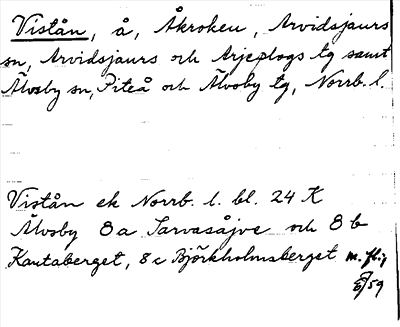 Vistån, å, Åkroken, Arvidsjaurs
sn, Arvidsjaurs och Arjeplogs tg samt
Älvsby sn, Piteå och Älvsby tg, Norrb. l.
Vistån ek Norrb. l. bl. 24 K
Älvsby 8 a Sarvasåjve och 8 b
Kautaberget, 8 c Björkholmsberget m. fl.
/59